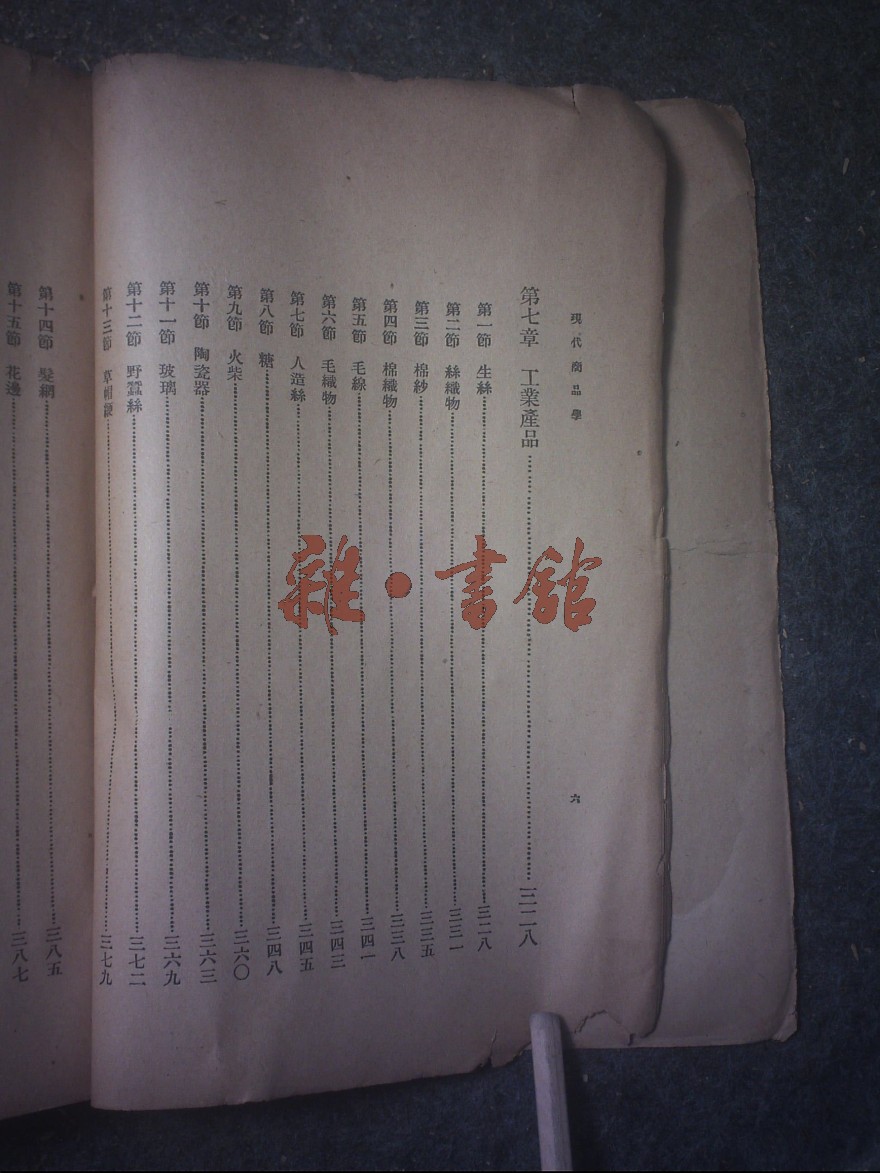 現代商品學
六
第七章 工業產品……三二八
第一節 生絲……三二八
第二節 絲織物……三三一
第三節 棉紗……三三五
第四節 棉織物……三三八
第五節 毛線……三四一
第六節 毛織物……三四三
第七節 人造絲……三四五
第八節 糖……三四八
第九節 火柴……三六〇
第十節 陶瓷器……三六三
第十一節 玻璃……三六九
第十二節 野蠶絲……三七二
第十三節 草帽鞭……三七九
第十四節 髮網……三八五
第十五節 花邊……三八七
雜·書館